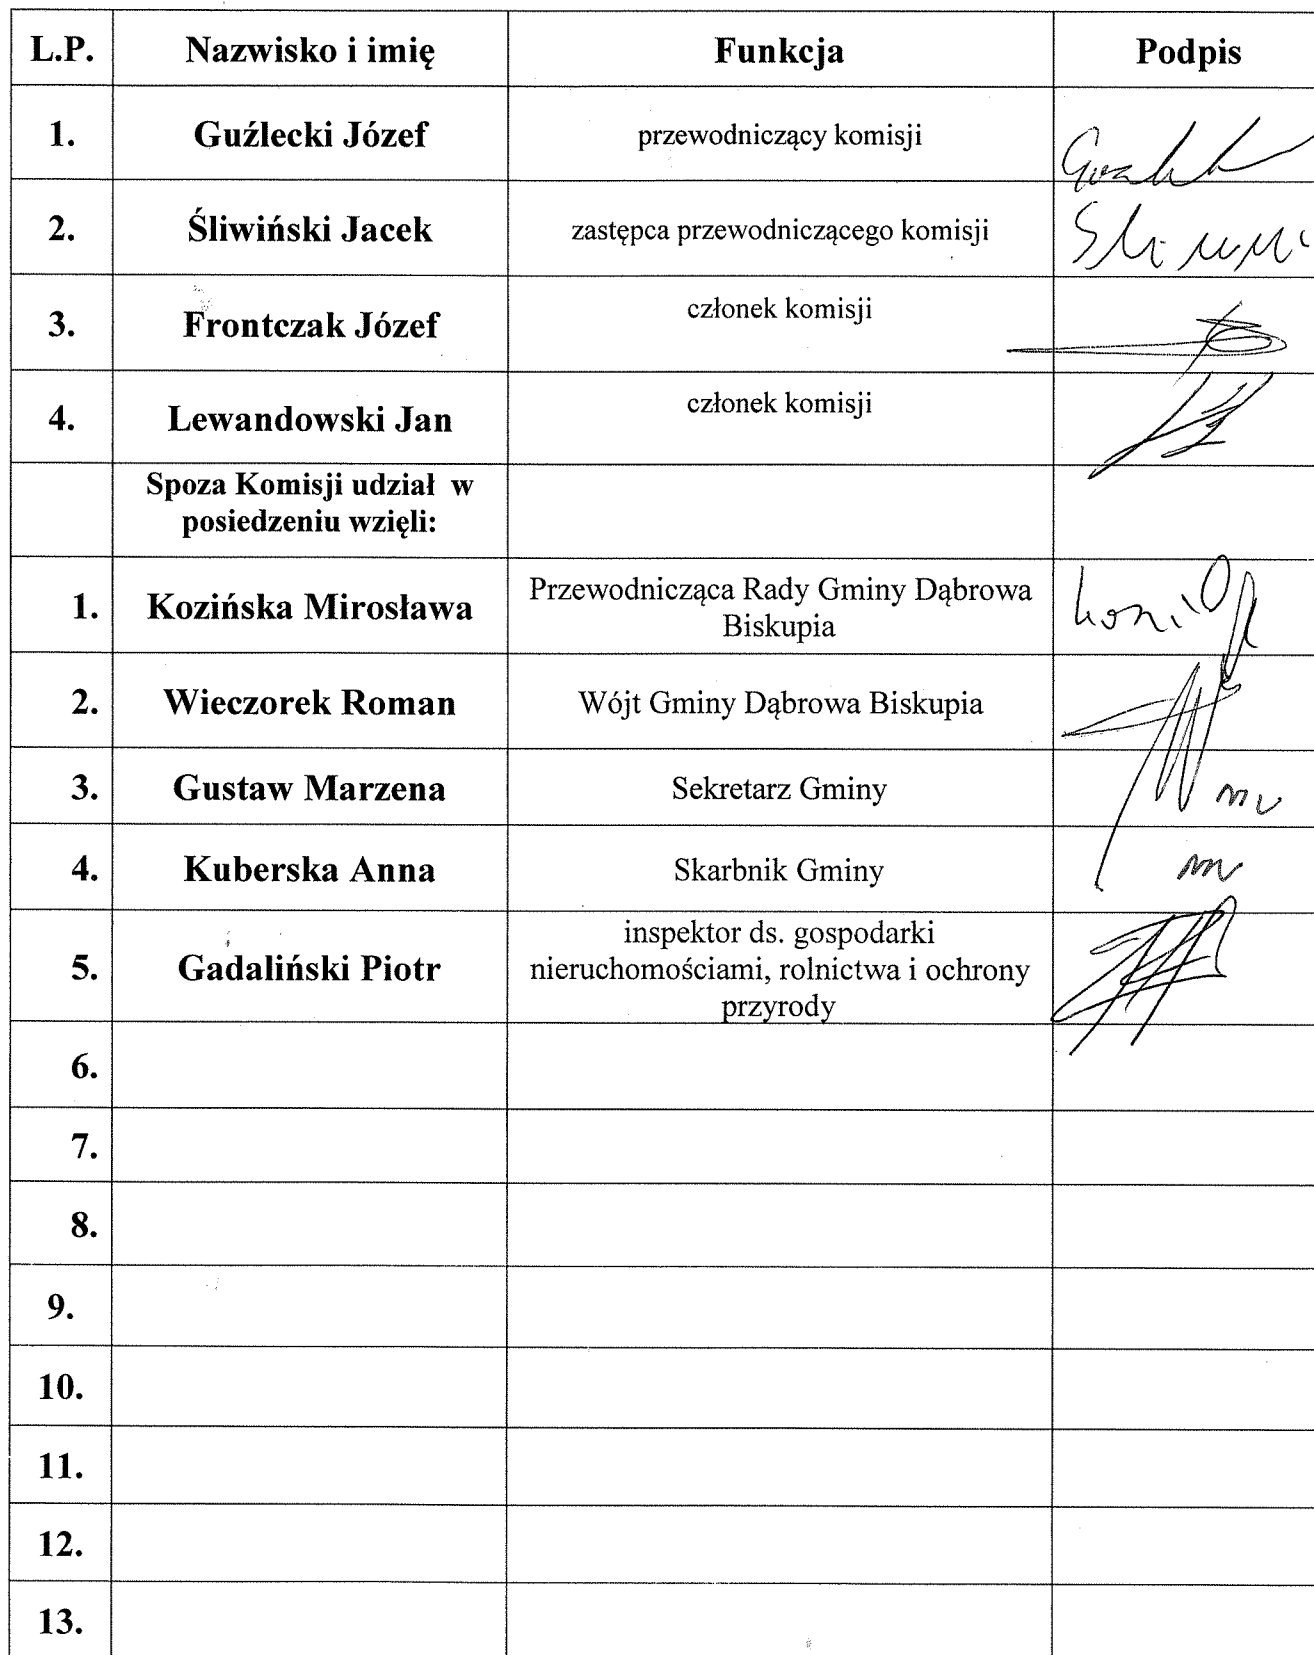 L.P. Nazwisko i imię Funkcja Podpis
1. Guźlecki Józef przewodniczący komisji
2. Śliwiński Jacek zastępca przewodniczącego komisji
3. Frontczak Józef członek komisji
4. Lewandowski Jan członek komisji
Spoza Komisji udział w
posiedzeniu wzięli:
1. Kozińska Mirosława Przewodnicząca Rady Gminy Dąbrowa
Biskupia
2. Wieczorek Roman Wójt Gminy Dąbrowa Biskupia
3. Gustaw Marzena Sekretarz Gminy
4. Kuberska Anna Skarbnik Gminy
5. Gadaliński Piotr inspektor ds. gospodarki
nieruchomościami, rolnictwa i ochrony
przyrody
6.
7.
8.
9.
10.
11.
12.
13.